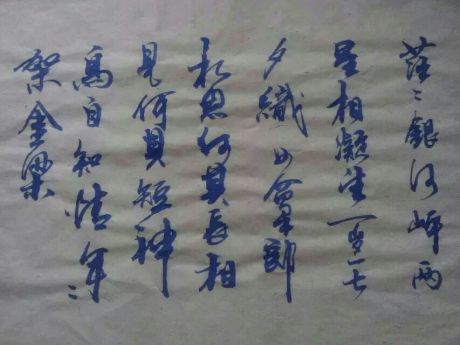 茫〻銀河畔两
星相凝望一岁一七
夕織女會牛郎
相思何其長相
見何其短神
鳥自知情年〻
架金梁